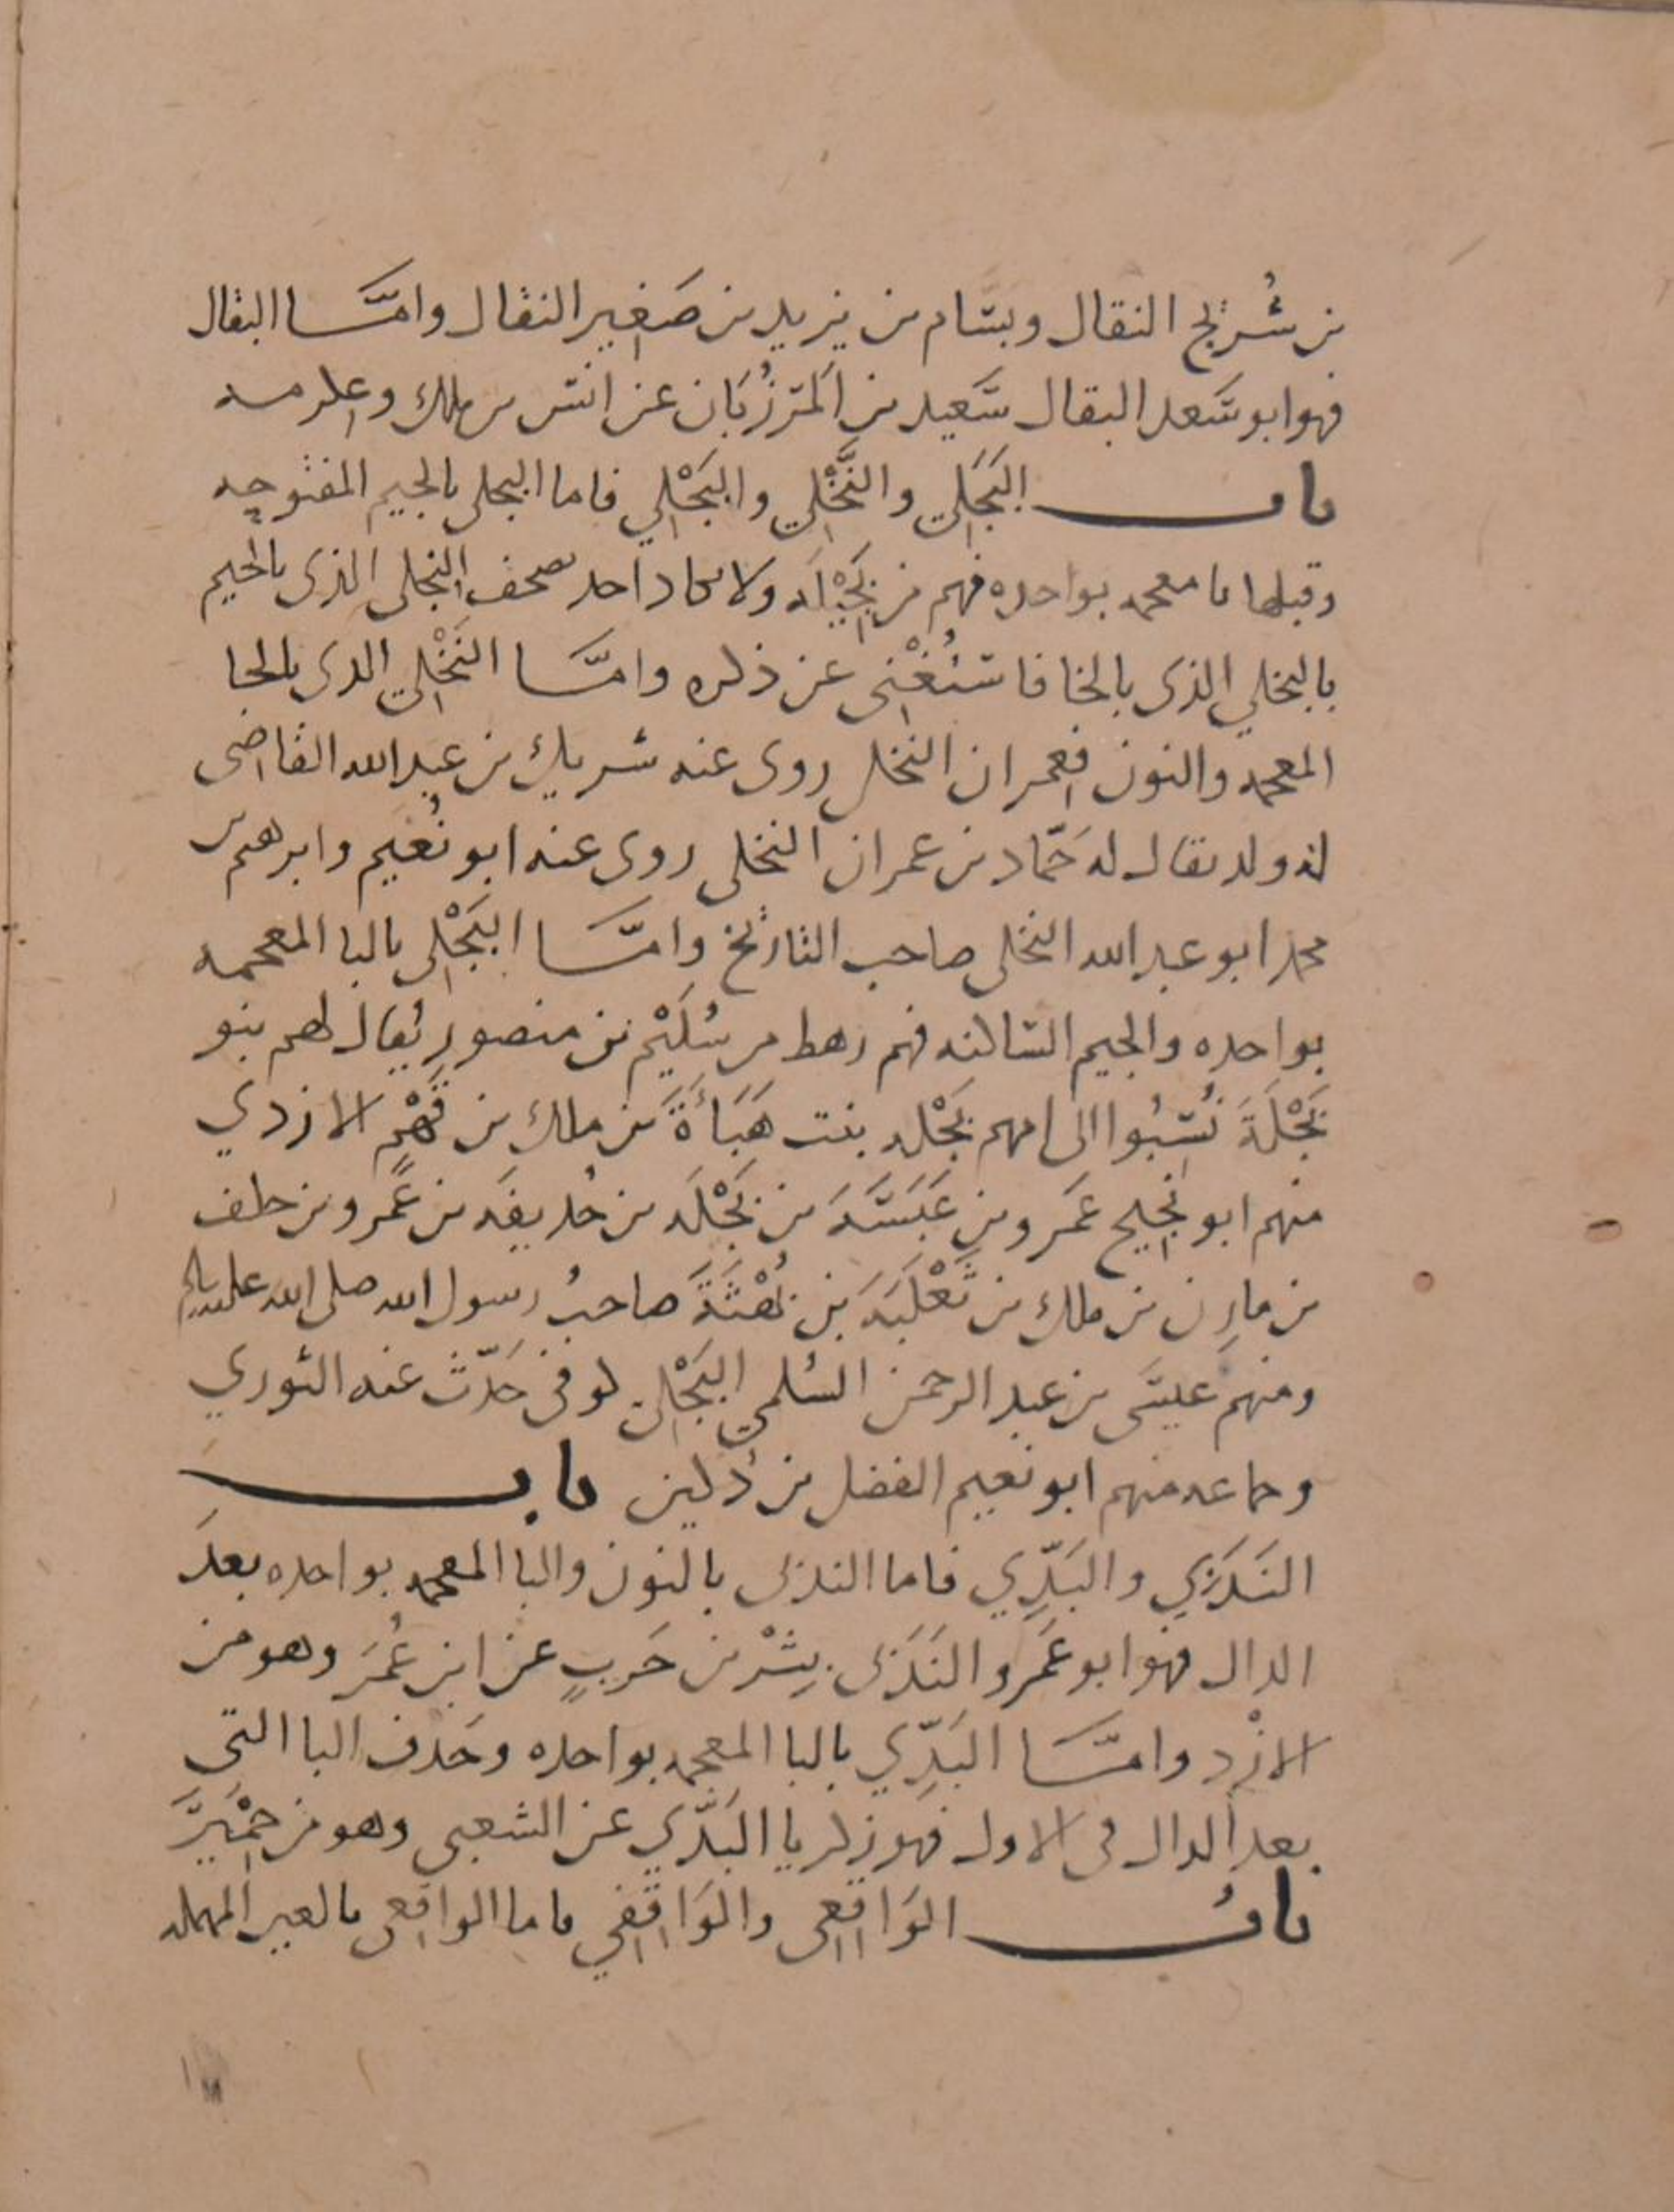 بن شُريج النقال وبسّام بن يزيد بن صَغير النقال وامّا البقال
فهو ابو سَعد البقال سَعيد بن المَرزُبَان عن انس بن ملك وعكرمه
باب البَجَلي والنَّخْلي والبَجْلي فاما البجلي بالجيم المفتوحه
وقبلها با معجمه بواحده فهم من بَجِيْلَه ولا يكاد احد يصحف البجلي الذي بالجيم
بالنخلي الذي بالخا فاستُغْنِي عن ذكره وامّا النَخْلي الذي بالخا
المعجمه والنون فعمران النخلي روى عنه شريك بن عبد الله القاضي
له ولد يقال له حَمّاد بن عمران النخلي روى عنه ابو نُعَيم وابرهيم بن
محمد ابو عبد الله النخلي صاحب التاريخ وامّا البَجْلي بالبا المعجمه
بواحده والجيم الساكنه فهم رهط من سُلَيْم بن منصور يُقال لهم بنو
بَجْلَةَ نُسِبُوا الى امهم بَجْله بنت هَنَاَةَ بن ملك بن فَهْمٍ الازدي
منهم ابو نجيح عَمرو بن عَبَسَةَ بن بَجْلَه بن حُذيفَه بن عَمرو بن خلف
بن مازِن بن ملك بن ثَعْلَبَه بن بُهْثَةَ صاحبُ رسول الله صلى الله عليه
ومنهم عيسَى بن عبد الرحمن السُلمي البَجْلي كوفي حَدّث عنه الثوري
وجماعه منهم ابو نعيم الفضل بن دُكين باب
النَدَبي والبَدِّي فاما الندبي بالنون والبا المعجمه بواحده بعدَ
الدال فهو ابو عَمرو النَدَبي بِشْر بن حَربٍ عن ابن عُمَر وهو من
الازْد وامّا البَدِّي بالبا المعجمه بواحده وحَذف البا التي
بعد الدال في الاول فهو زكريا البَدِّي عن الشعبي وهو من حِمْيَر
بابُ الوَاقِعي والوَاقِفي فاما الواقعي بالعين المهمله